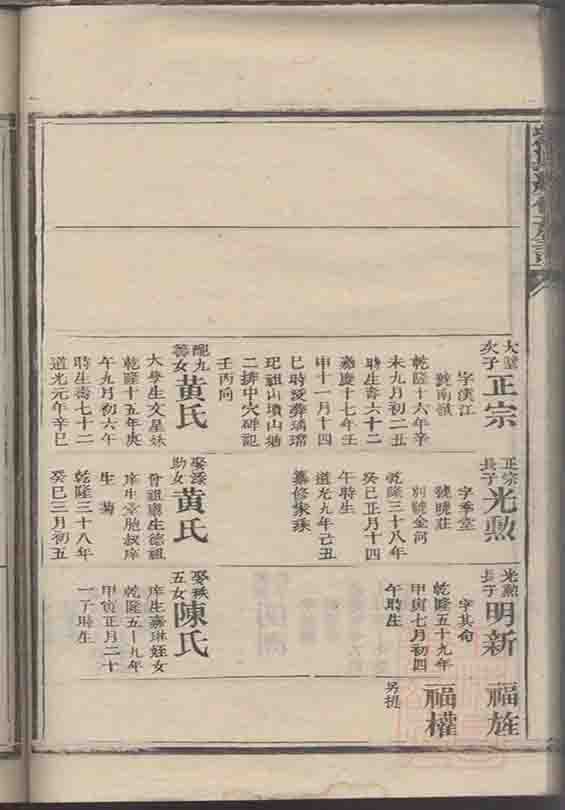 大塋
次子
正宗
字漢江
號南嶽
乾隆十六年辛
未九月初二丑
時生壽六十二
嘉慶十七年壬
申十一月十四
巳時歿葬
祖山墳山
二排中穴碑記
壬丙向
配九
善女
黃氏
大學生文星妹
乾隆十五年庚
午九月初六午
時生壽七十二
道光元年辛巳
正宗
長子
光勲
字季堂
號曉莊
別號金河
乾隆三十八年
癸巳正月十四
午時生
道光九年己丑
纂修家乘
娶添
助女
黃氏
曾祖廩生德祖
庠生堂胞叔庠
生菊
乾隆三十八年
癸巳三月初五
光勲
長子
明新
字其命
乾隆五十九年
甲寅七月初四
午時生
娶秩
五女
陳氏
庠生嘉琳姪女
乾隆五十九年
甲寅正月二十
一子時生
福旌
福權
另提